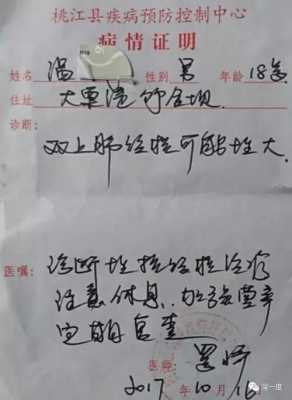 桃江县疾病预防控制中心
病情证明
姓名 温 性别 男 年龄 18岁
住址 大栗港
诊断：
双上肺结核可能性大
医嘱：
诊断性抗结核治疗
注意休息、加强营养
定期复查
医师
2017年10月16
深一度